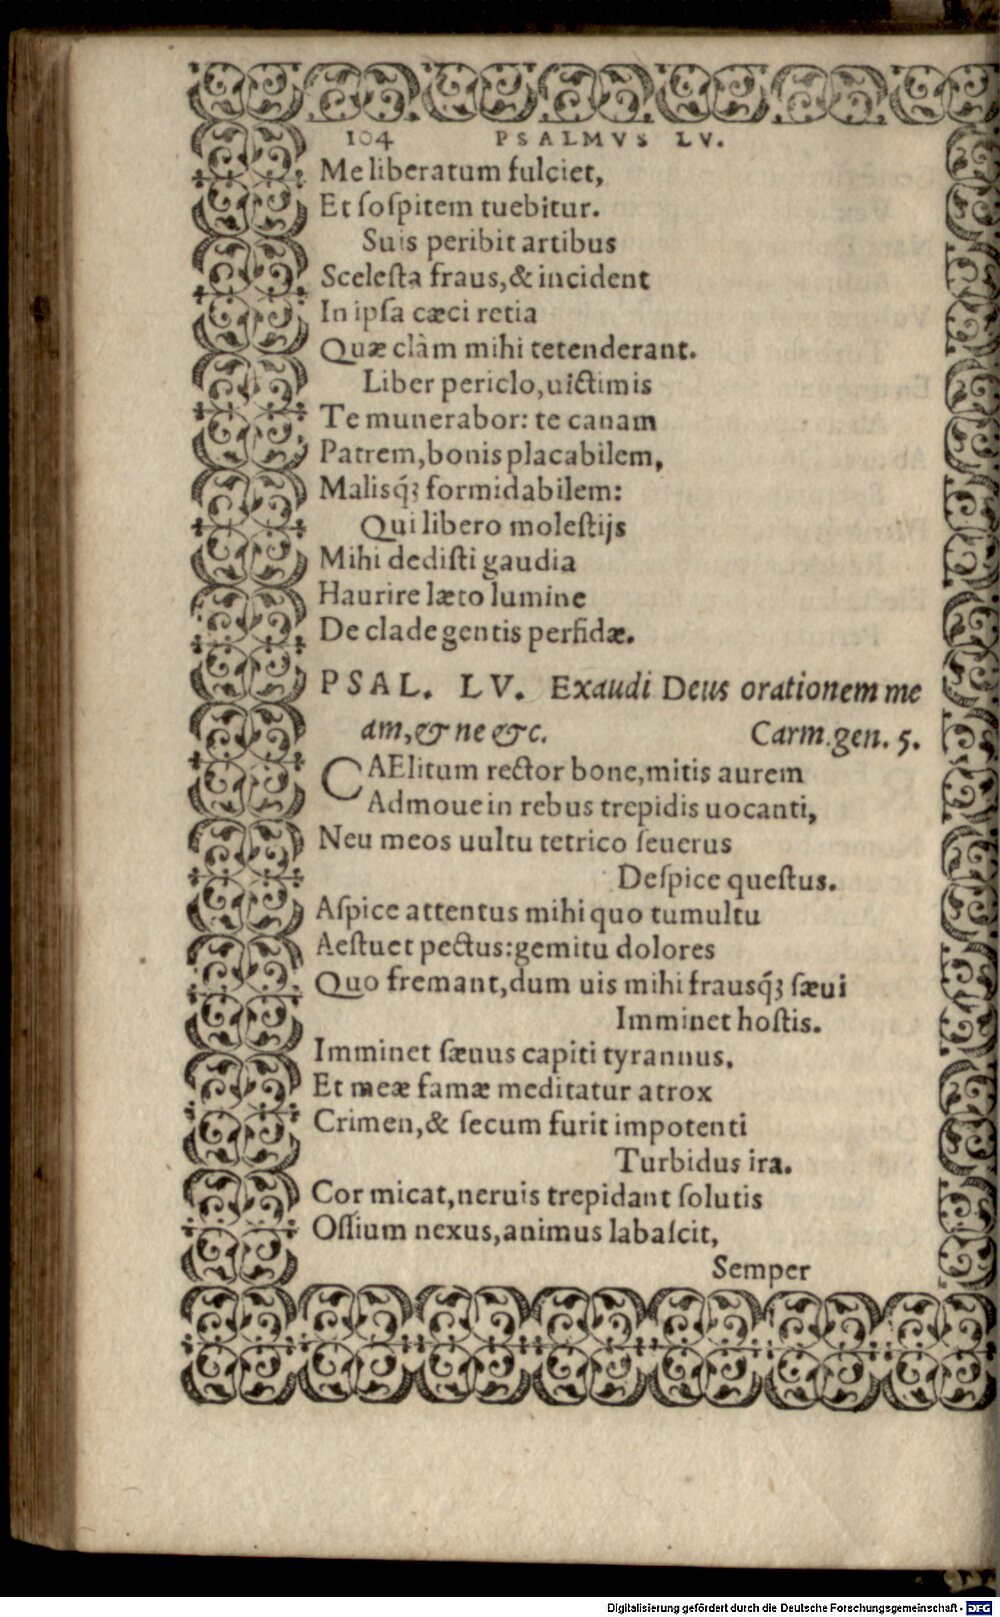 104 PSALMVS LV.
Me liberatum fulciet,
Et ſoſpitem tuebitur.
Suis peribit artibus
Sceleſta fraus,& incident
In ipſa cæci retia
Quæ clàm mihi tetenderant.
Liber periclo,uictimis
Te munerabor: te canam
Patrem,bonis placabilem,
Malisq́ꝫ formidabilem:
Qui libero moleſtijs
Mihi dediſti gaudia
Haurire læto lumine
De clade gentis perfidæ.
PSAL. LV. Exaudi Deus orationem me
am,& ne &c. Carm.gen. 5.
CAElitum rector bone,mitis aurem
Admoue in rebus trepidis uocanti,
Neu meos uultu tetrico ſeuerus
Deſpice queſtus.
Aſpice attentus mihi quo tumultu
Aeſtuet pectus:gemitu dolores
Quo fremant,dum uis mihi frausq́ꝫ ſæui
Imminet hoſtis.
Imminet ſæuus capiti tyrannus,
Et meæ famæ meditatur atrox
Crimen,& ſecum furit impotenti
Turbidus ira.
Cor micat,neruis trepidant ſolutis
Oſſium nexus,animus labaſcit,
Semper
Digitalisierung gefördert durch die Deutsche Forschungsgemeinschaft - DFG